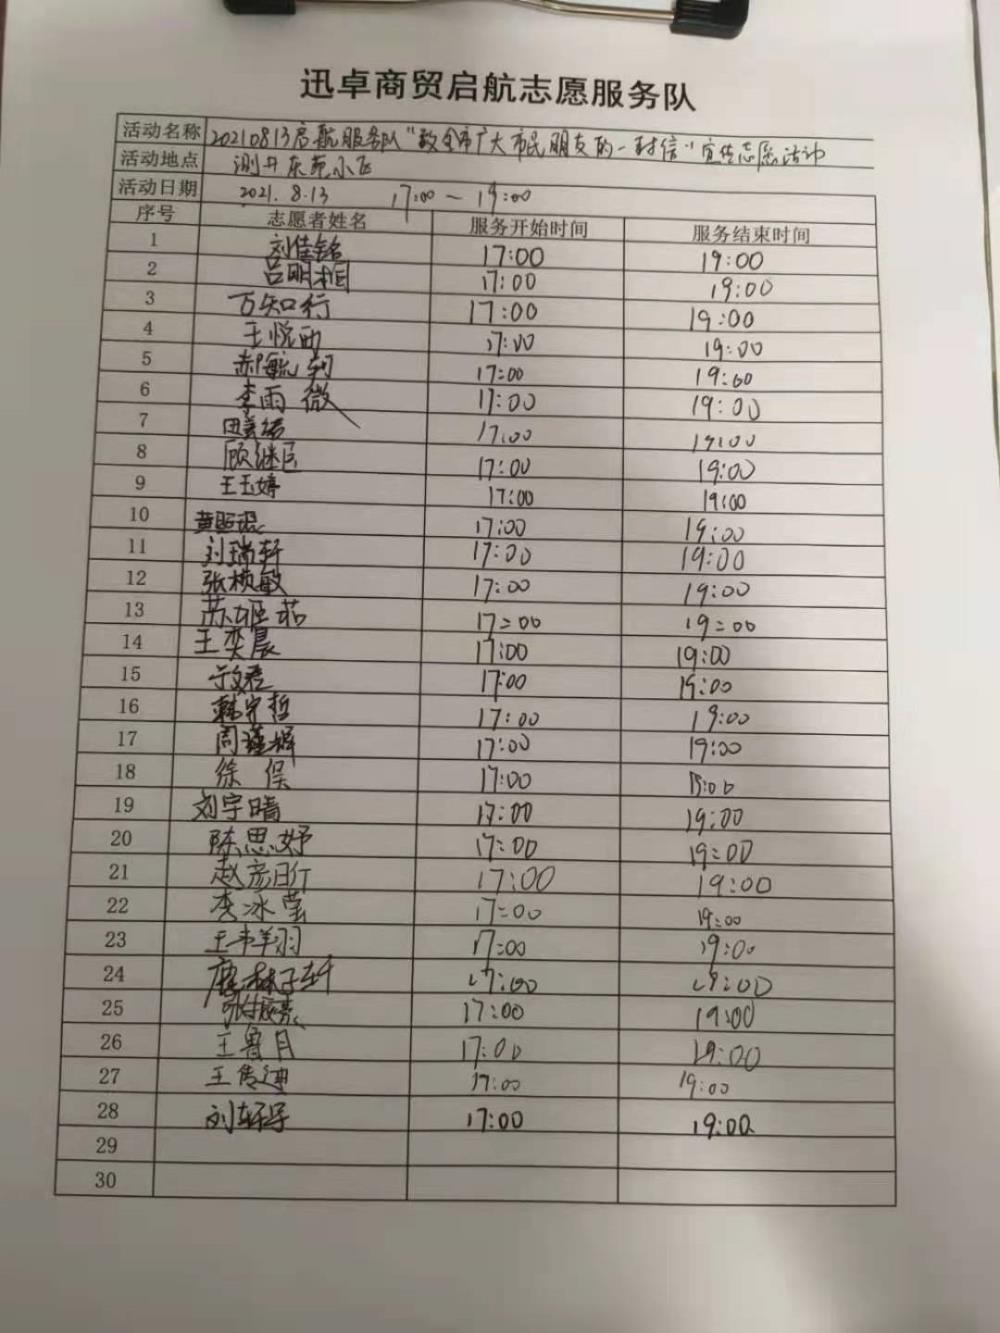 迅卓商贸启航志愿服务队
活动名称 20210813启航服务队"致全市广大市民朋友的一封信"宣传志愿活动
活动地点 测井东苑小区
活动日期 2021.8.13 17:00~19:00
序号 志愿者姓名 服务开始时间 服务结束时间
1 刘佳铭 17:00 19:00
2 吕明桓 17:00 19:00
3 万知行 17:00 19:00
4 王悦 17:00 19:00
5 郝毓 17:00 19:00
6 李雨微 17:00 19:00
7 17:00 19:00
8 顾继臣 17:00 19:00
9 王玉婷 17:00 19:00
10 黄照琨 17:00 19:00
11 刘瑞轩 17:00 19:00
12 张桢敏 17:00 19:00
13 苏茹 17:00 19:00
14 王奕晨 17:00 19:00
15 17:00 19:00
16 韩宇哲 17:00 19:00
17 周瑾辉 17:00 19:00
18 徐俣 17:00 19:00
19 刘宇晴 17:00 19:00
20 陈思妤 17:00 19:00
21 赵彦昕 17:00 19:00
22 李冰莹 17:00 19:00
23 王韦羊羽 17:00 19:00
24 鹿林子轩 17:00 19:00
25 张 17:00 19:00
26 王鲁月 17:00 19:00
27 王传迪 17:00 19:00
28 刘轩宇 17:00 19:00
29
30